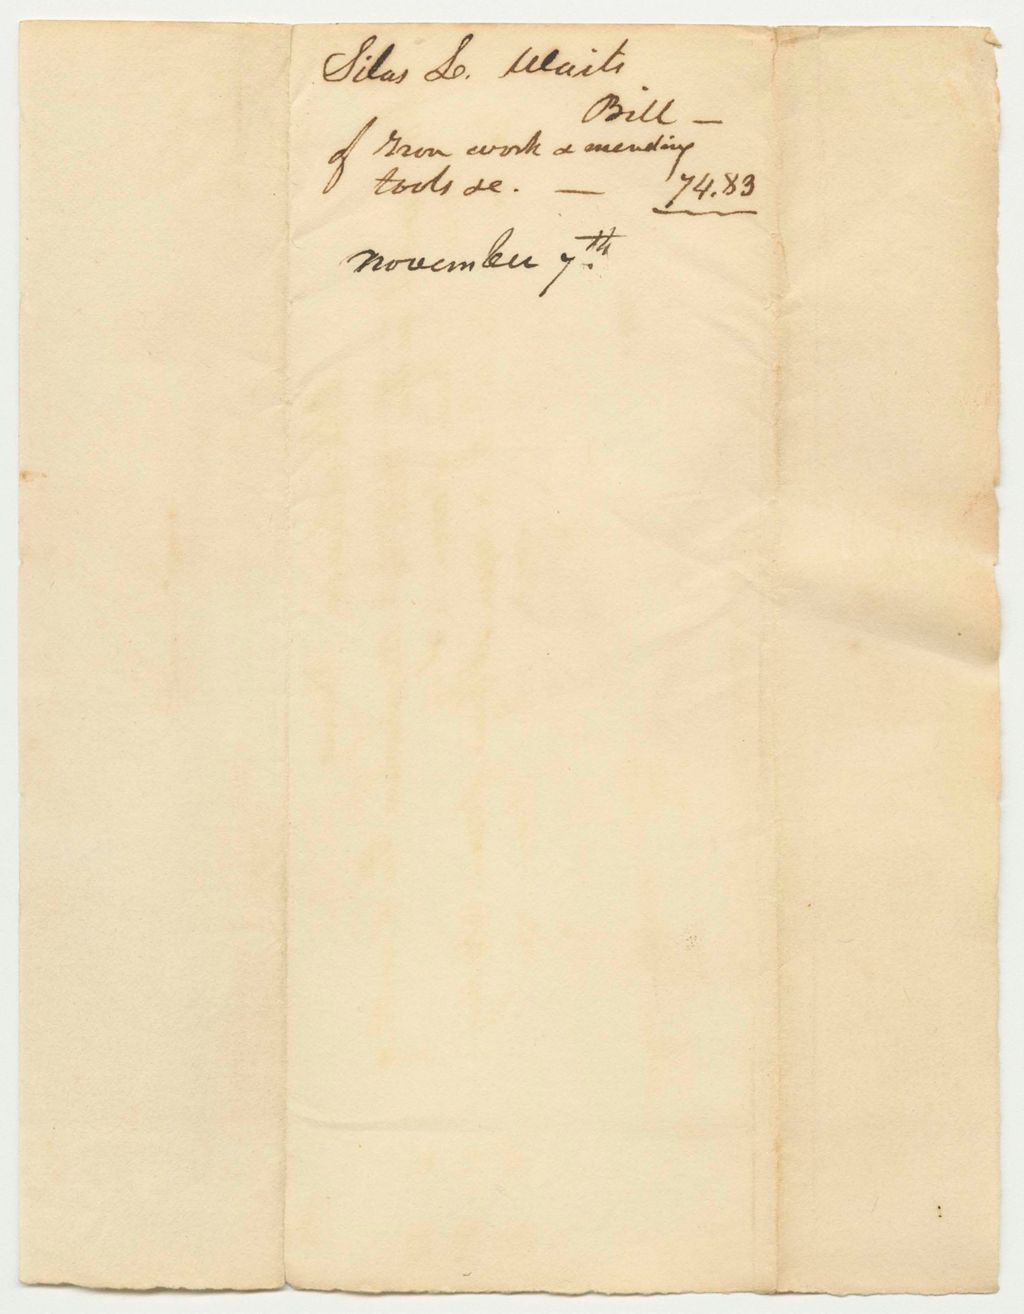 Silas L. Waits
Bill —
of Iron work & mending
tools &c. — 74.83
November 7.th